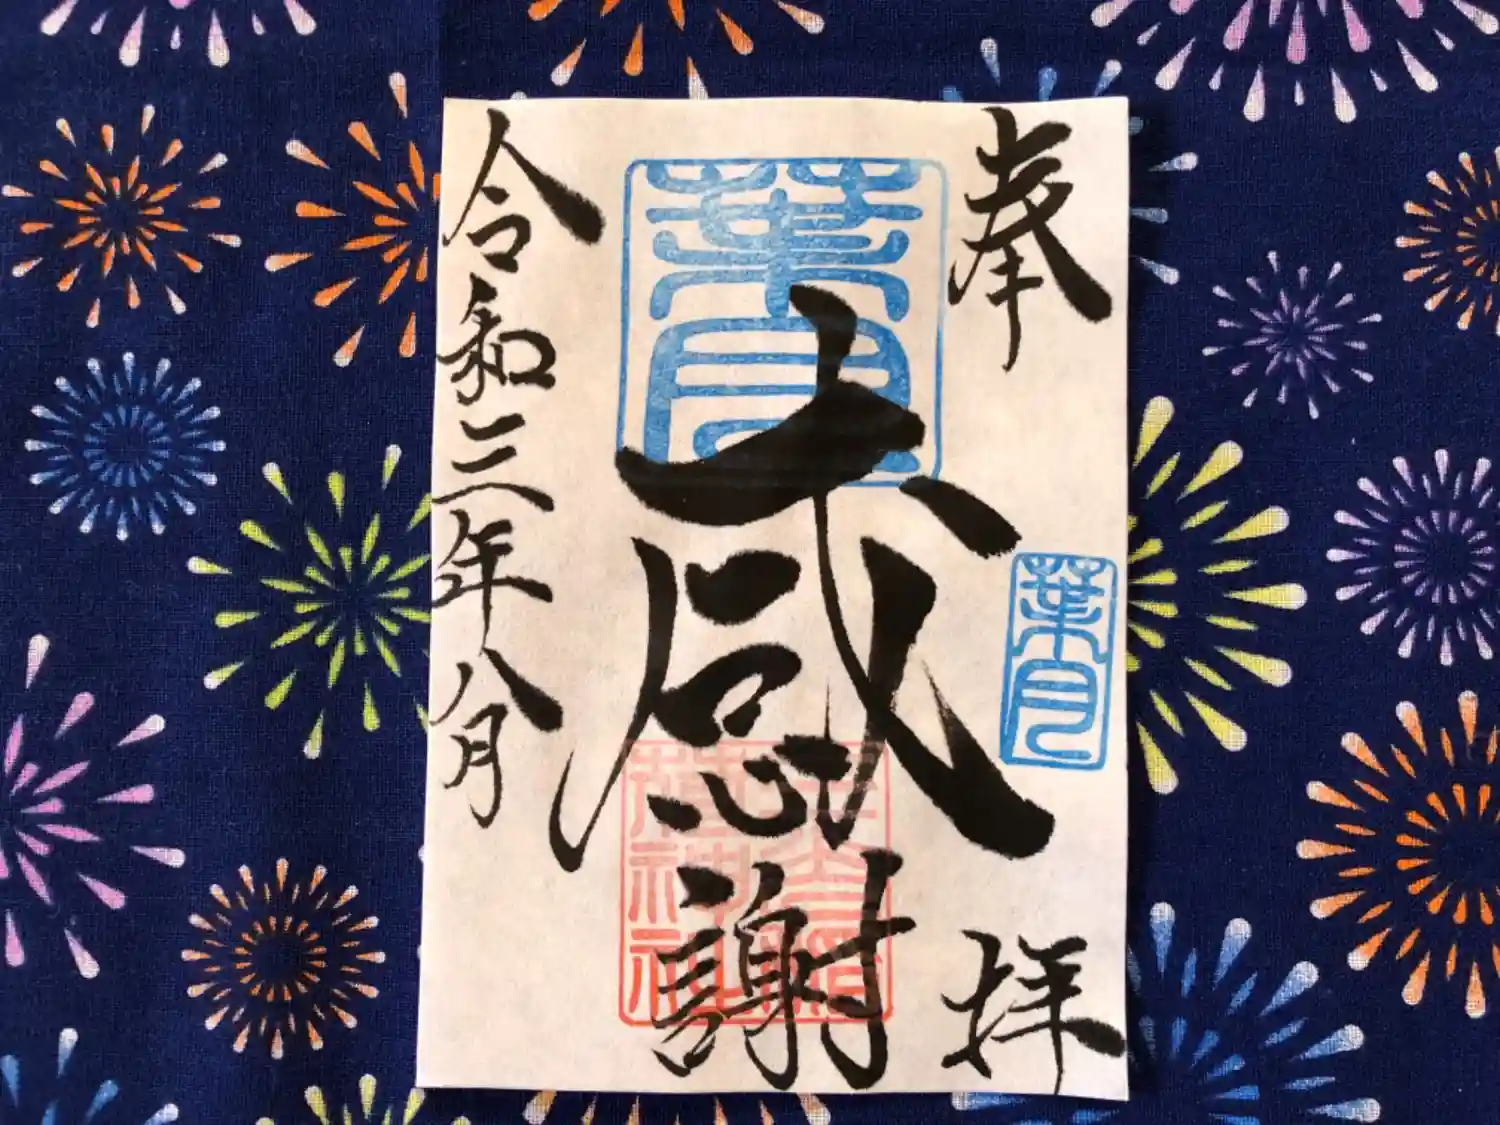 奉拝
葉月
葉月
感謝
神社
令和三年八月